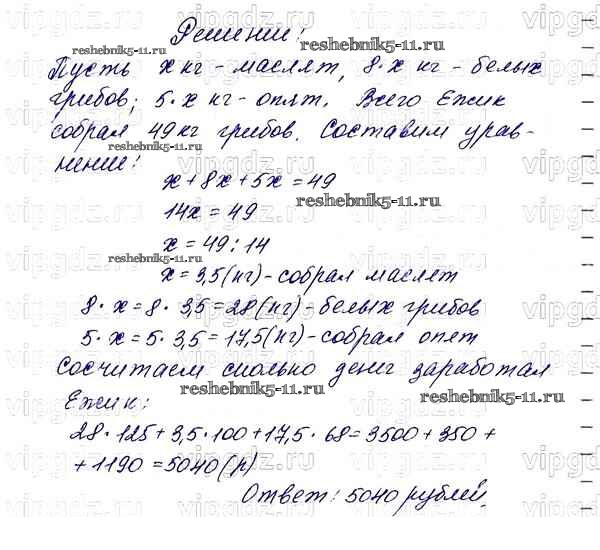 Решение:
Пусть x кг - маслят, 8·x кг - белых
грибов; 5·x кг - опят. Всего Ежик
собрал 49 кг грибов. Составим урав-
нение:
x + 8x + 5x = 49
14x = 49
x = 49 : 14
x = 3,5 (кг) - собрал маслят
8·x = 8·3,5 = 28 (кг) - белых грибов
5·x = 5·3,5 = 17,5 (кг) - собрал опят
Сосчитаем сколько денег заработал
Ежик:
28·125 + 3,5·100 + 17,5·68 = 3500 + 350 +
+ 1190 = 5040 (р)
Ответ: 5040 рублей.
reshebnik5-11.ru
reshebnik5-11.ru
reshebnik5-11.ru
reshebnik5-11.ru
reshebnik5-11.ru
reshebnik5-11.ru
reshebnik5-11.ru
vipgdz.ru